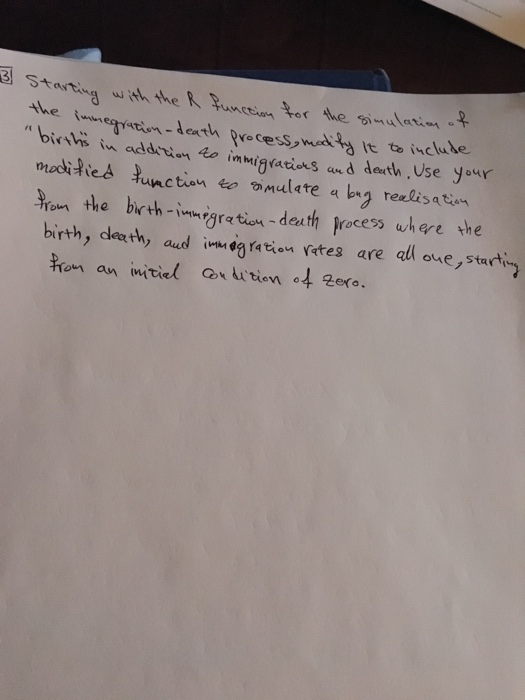 3 Starting with the R function for the simulation of
the immegration-death process, modify it to include
"births" in addition to immigrations and death. Use your
modified function to simulate a long realisation
from the birth-immigration-death process where the
birth, death, and immigration rates are all one, starting
from an initial condition of zero.